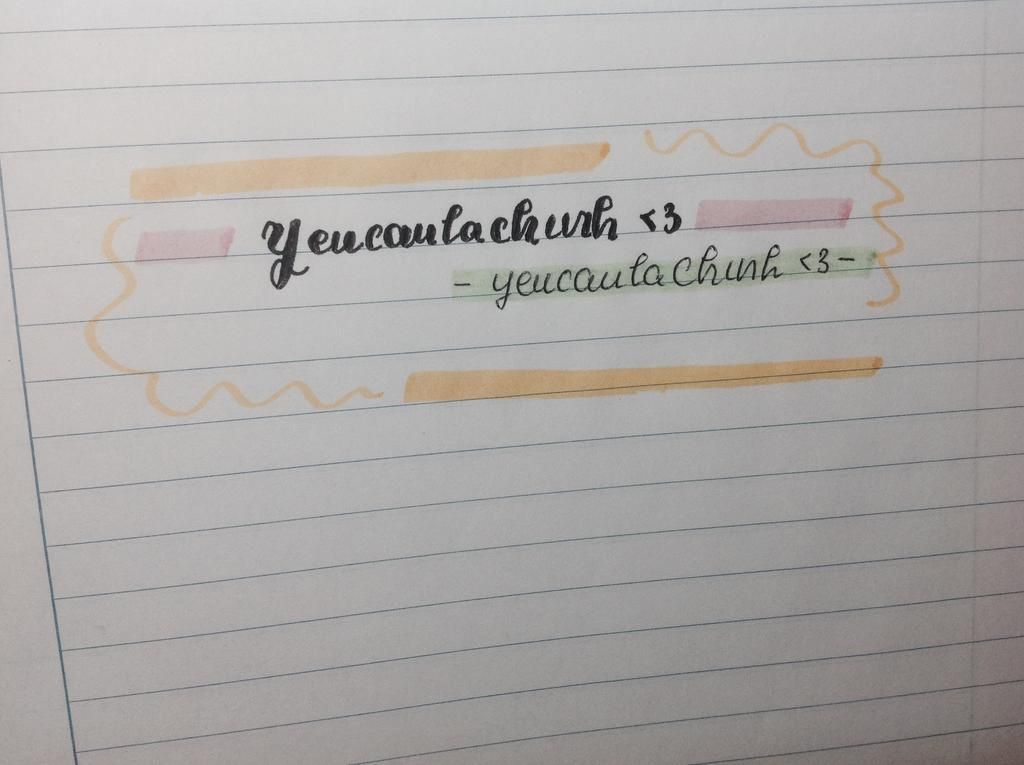 Yeucaulachunh <3
- yeucaulachunh <3 -